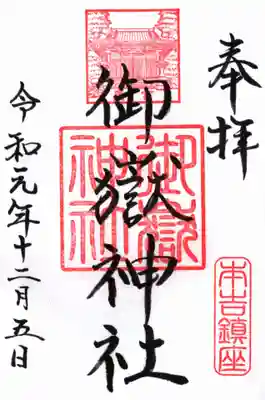 奉拝
本吉鎮座
御嶽神社
御嶽
神社
令和元年十二月五日